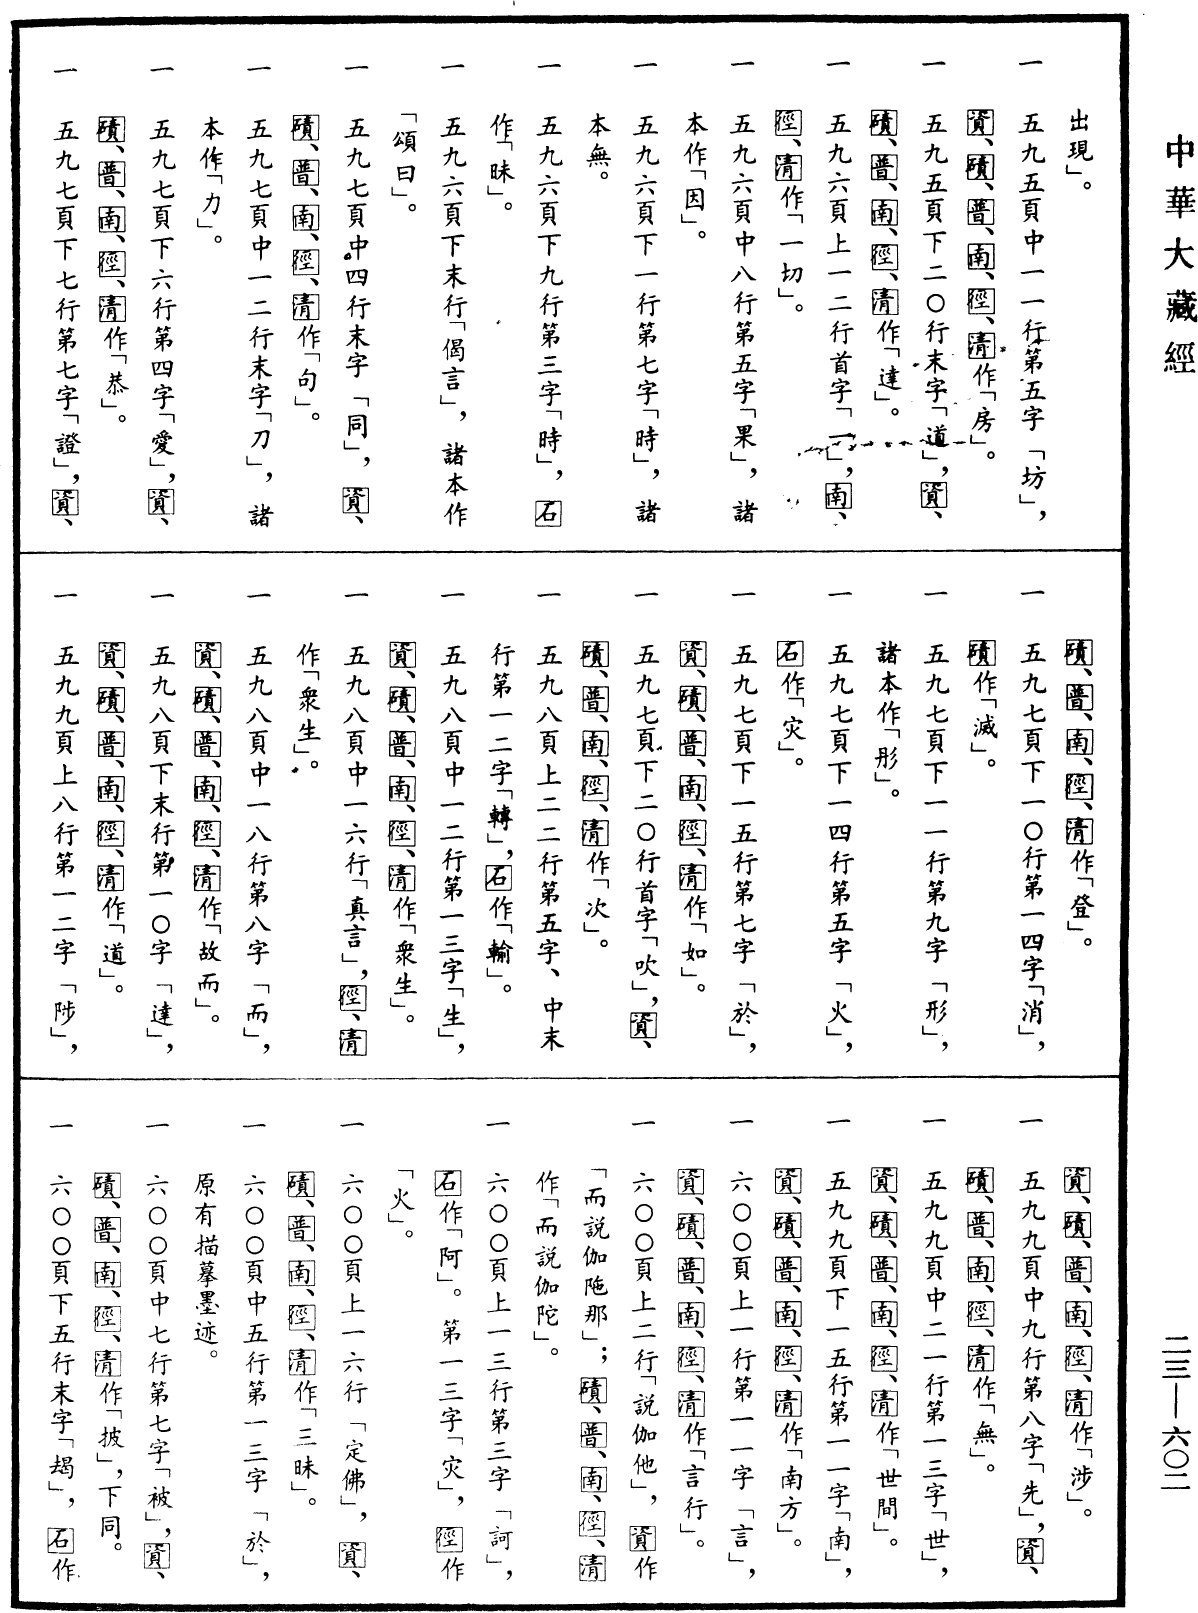 中華大藏經
出現」。
一 五九五頁中一一行第五字「坊」，
資、磧、普、南、徑、清作「房」。
一 五九五頁下二〇行末字「道」，資、
磧、普、南、徑、清作「達」。
一 五九六頁上一二行首字「一」，南、
徑、清作「一切」。
一 五九六頁中八行第五字「果」，諸
本作「因」。
一 五九六頁下一行第七字「時」，諸
本無。
一 五九六頁下九行第三字「時」，石
作「昧」。
一 五九六頁下末行「偈言」，諸本作
「頌曰」。
一 五九七頁中四行末字「同」，資、
磧、普、南、徑、清作「句」。
一 五九七頁中一二行末字「刀」，諸
本作「力」。
一 五九七頁下六行第四字「愛」，資、
磧、普、南、徑、清作「恭」。
一 五九七頁下七行第七字「證」，資、
磧、普、南、徑、清作「登」。
一 五九七頁下一〇行第一四字「消」，
磧作「滅」。
一 五九七頁下一一行第九字「形」，
諸本作「彤」。
一 五九七頁下一四行第五字「火」，
石作「灾」。
一 五九七頁下一五行第七字「於」，
資、磧、普、南、徑、清作「如」。
一 五九七頁下二〇行首字「吹」，資、
磧、普、南、徑、清作「次」。
一 五九八頁上二二行第五字、中末
行第一二字「轉」，石作「輸」。
一 五九八頁中一二行第一三字「生」，
資、磧、普、南、徑、清作「衆生」。
一 五九八頁中一六行「真言」，徑、清
作「衆生」。
一 五九八頁中一八行第八字「而」，
資、磧、普、南、徑、清作「故而」。
一 五九八頁下末行第一〇字「達」，
資、磧、普、南、徑、清作「道」。
一 五九九頁上八行第一二字「陟」，
資、磧、普、南、徑、清作「涉」。
一 五九九頁中九行第八字「先」，資、
磧、普、南、徑、清作「無」。
一 五九九頁中二一行第一三字「世」，
資、磧、普、南、徑、清作「世間」。
一 五九九頁下一五行第一一字「南」，
資、磧、普、南、徑、清作「南方」。
一 六〇〇頁上一行第一一字「言」，
資、磧、普、南、徑、清作「言行」。
一 六〇〇頁上二行「說伽他」，資作
「而說伽陁那」；磧、普、南、徑、清
作「而說伽陀」。
一 六〇〇頁上一三行第三字「訶」，
石作「阿」。第一三字「灾」，徑作
「火」。
一 六〇〇頁上一六行「定佛」，資、
磧、普、南、徑、清作「三昧」。
一 六〇〇頁中五行第一三字「於」，
原有描摹墨迹。
一 六〇〇頁中七行第七字「被」，資、
磧、普、南、徑、清作「披」，下同。
一 六〇〇頁下五行末字「堨」，石作
二三—六〇二